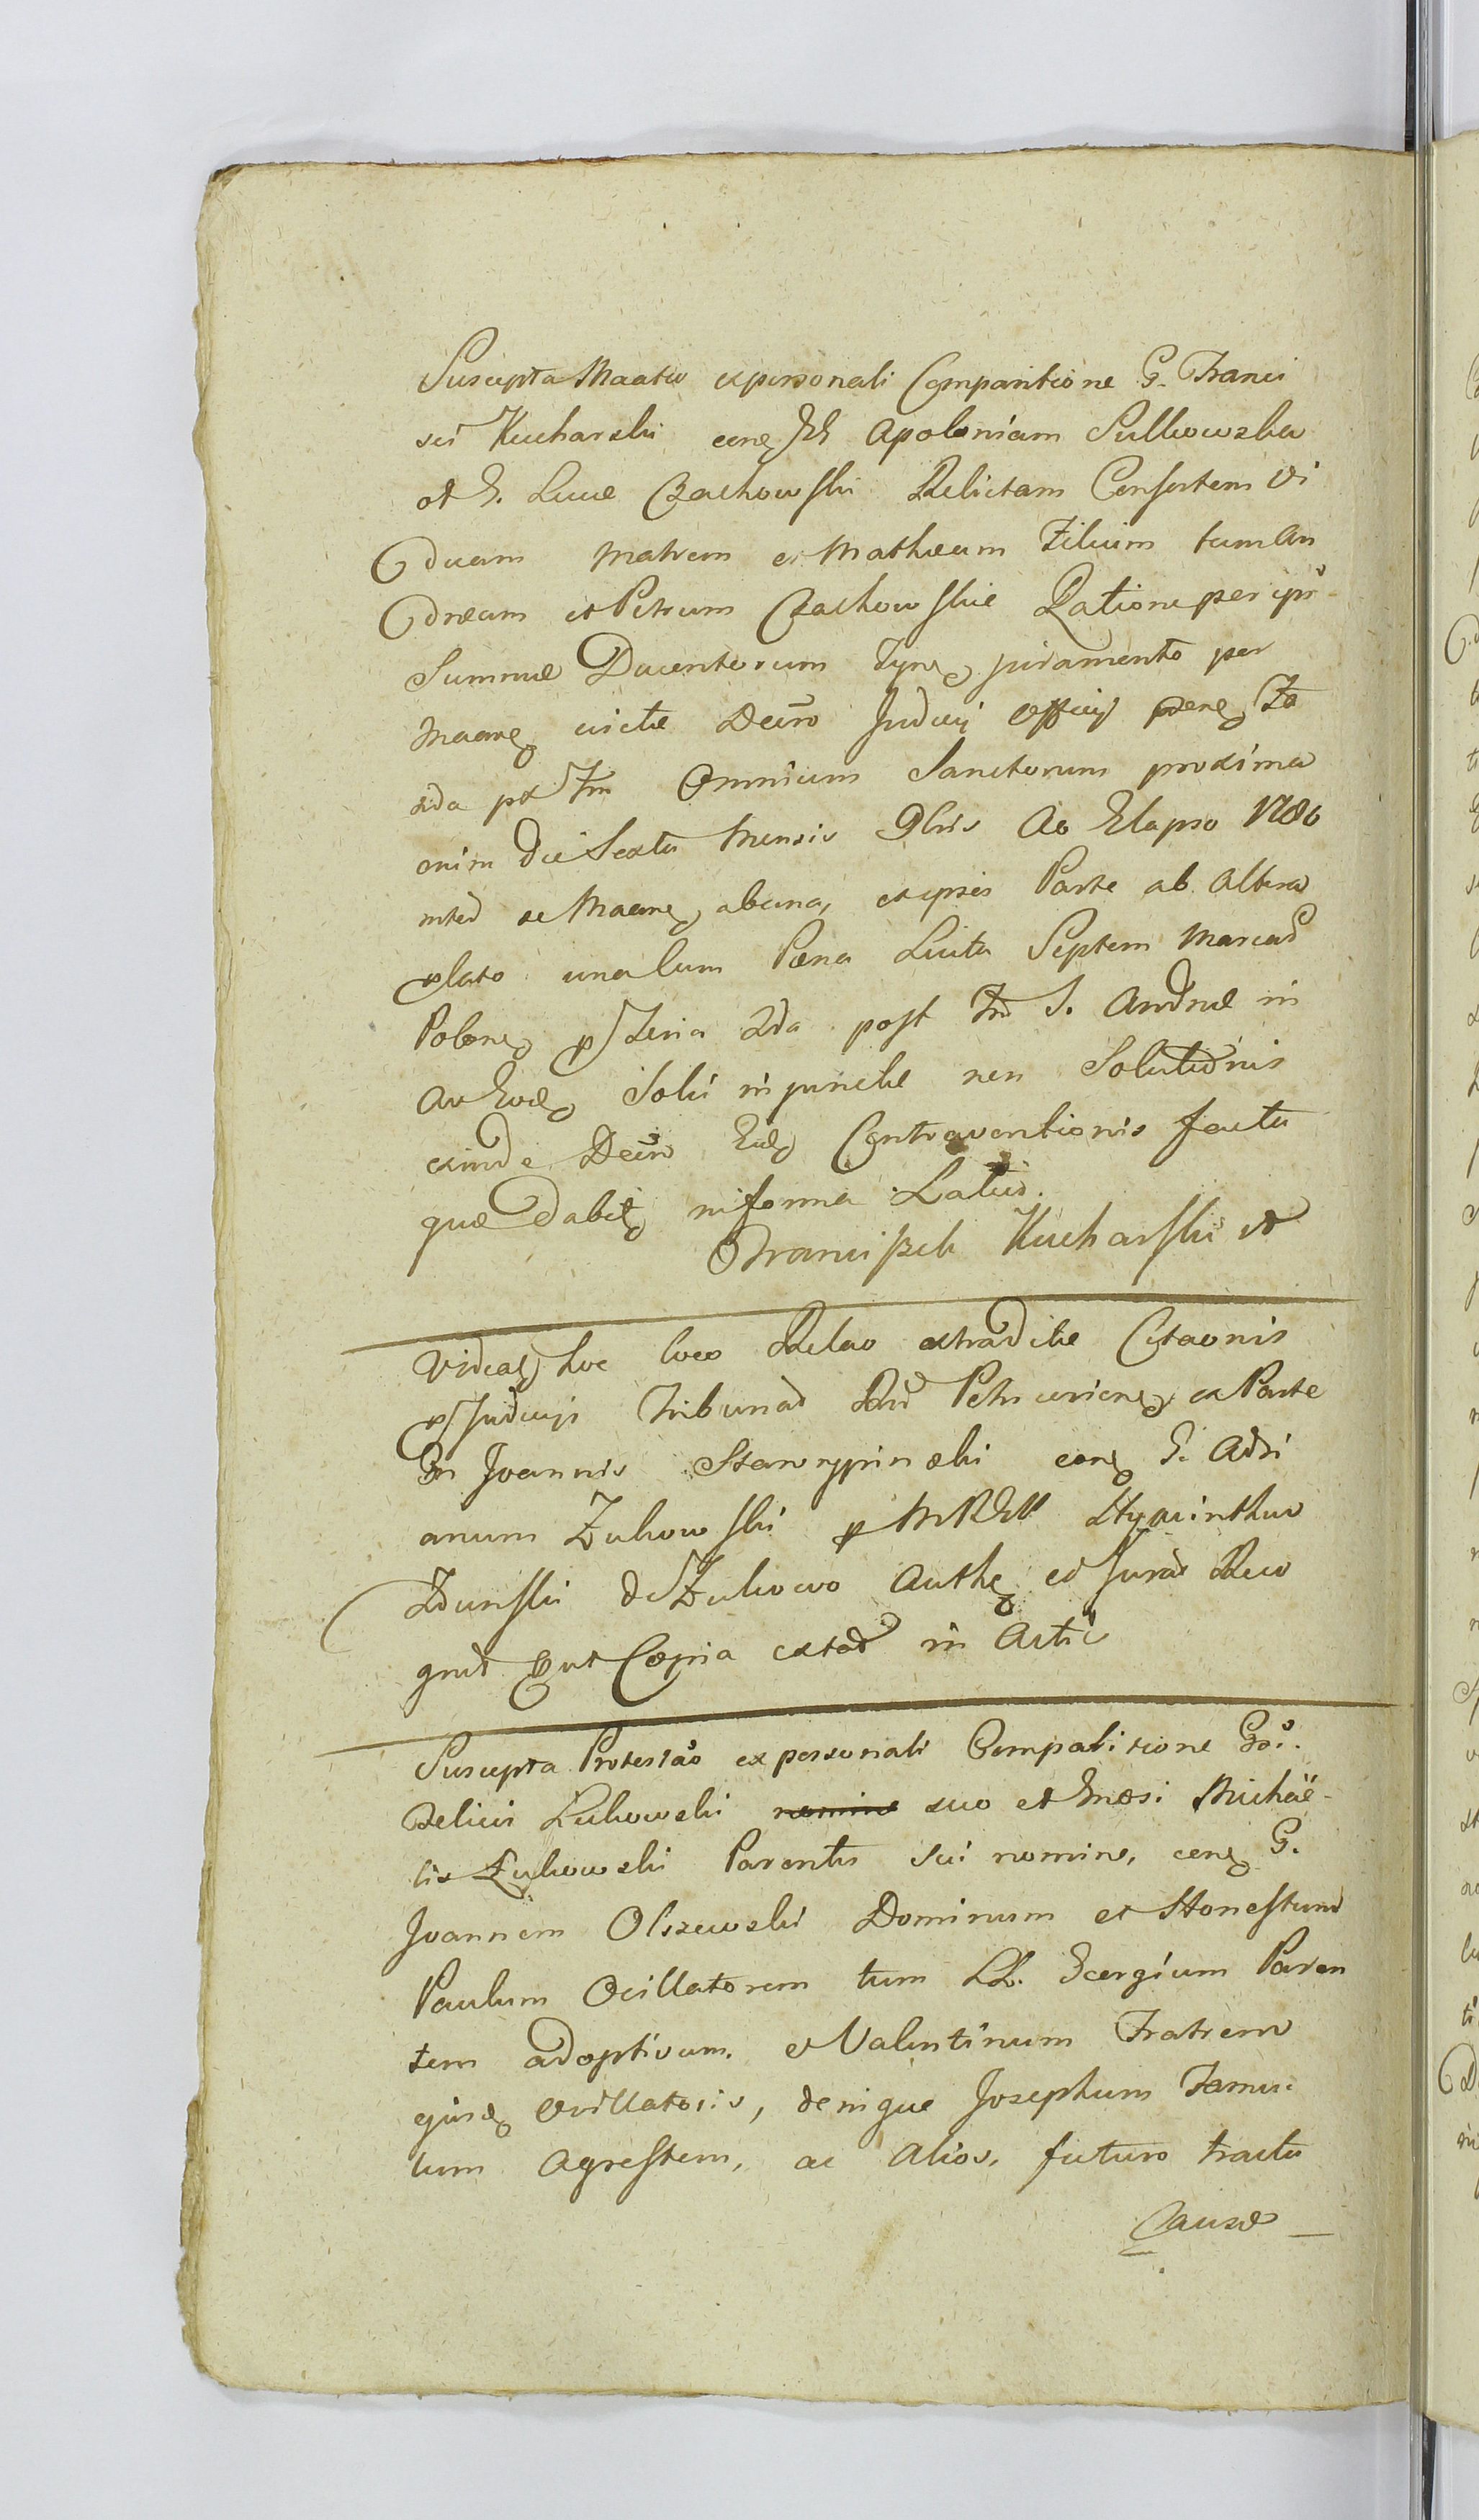 Suscepta Maatio ex personali Comparitione G. Franci
sci Kucharski conq Apoloniam Sulkowska
et G. Lucæ Czachowski Relictam Consortem Vi
duam Matrem et Mathæum Filium tum An
dream et Petrum Czachowskie Ratione per ips
Summæ Ducentorum Tynf juramento per
Maane evictæ Decro Judicij Officij
2da pt Fm Omnium Sanctorum proxima
enim die Sexta Mensis 9bris Ao Elapso 1786
inter se Maane ab una, et ipsis Parte ab altera
plato una cum Pæna Luita Septem Marcar
Polone Feria 2da post Fm S. Andreæ in
Solvi injunctæ non Solutionis
exinde Decro Contraventionis facta
quæ dabit in forma Latius.
Franciszek Kucharski
Videat hoc loco Relao extraditæ Citaonis
Judicij Tribunal Rni Petricovien ex Parte
Gn Joannis Skarzypinski conq G. Adri
anum Zukowski p Hyacinthus
Zdunski de Zukowo Auth et Jurat Reco
gnit Prut Copia extat in Actis
Suscepta Protestao ex personali Comparitione Gosi.
Felicis Zukowski nomine suo et Gnosi Michaë-
lis Zukowski Parentis sui nomine, conq G.
Joannem Olszewski Dominum et Honestum
Paulum Ocillatorem tum LL. Georgium Paren
tem adoptivum et Valentinum Fratrem
ejusd Ocillatoris, denique Josephum Famu-
lum Agrestem, ac alios, futuro tractu
Causæ